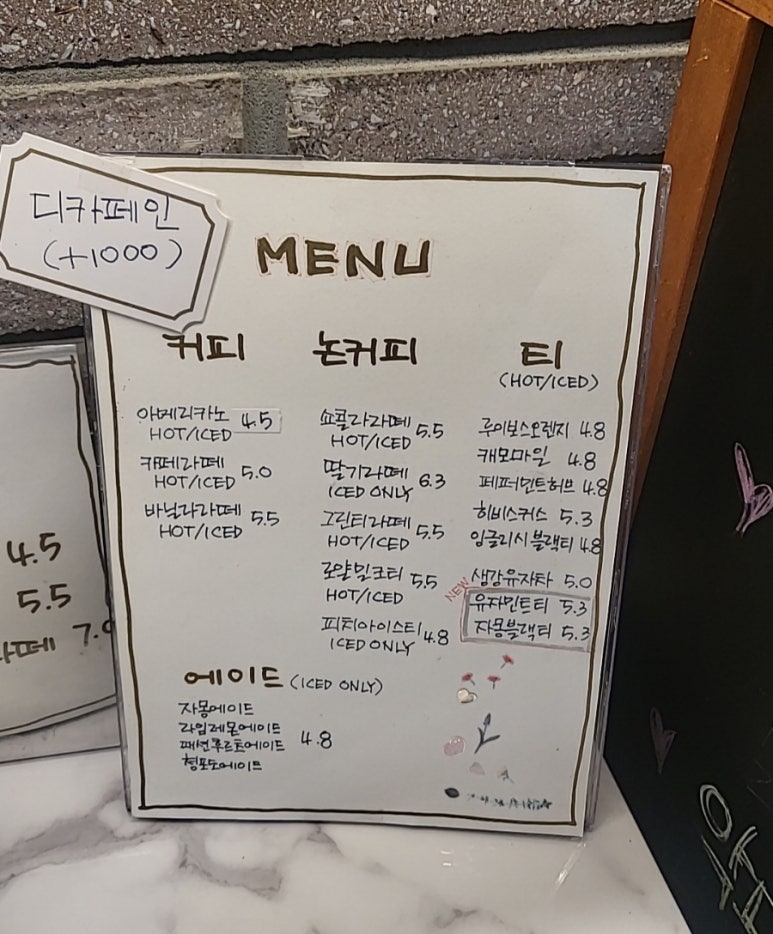 디카페인
(+1000)
MENU
커피
아메리카노 4.5
HOT/ICED
카페라떼 5.0
HOT/ICED
바닐라라떼 5.5
HOT/ICED
논커피
쇼콜라라떼 5.5
HOT/ICED
딸기라떼 6.3
ICED ONLY
그린티라떼 5.5
HOT/ICED
로얄밀크티 5.5
HOT/ICED
피치아이스티 4.8
ICED ONLY
티
(HOT/ICED)
루이보스오렌지 4.8
캐모마일 4.8
페퍼민트허브 4.8
히비스커스 5.3
잉글리시블랙티 4.8
생강유자차 5.0
NEW
유자민트티 5.3
자몽블랙티 5.3
에이드 (ICED ONLY)
자몽에이드
라임레몬에이드
패션후르츠에이드 4.8
청포도에이드
4.5
5.5
라떼